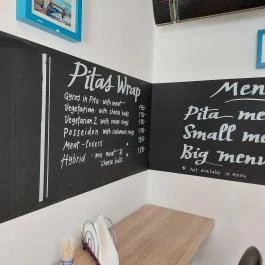 Pitas Wrap
Gyros in Pita with meat
Vegetarian with cheese balls
Vegetarian 2 with onion rings
Posseidon with calamari rings
Meat-lovers
Hybrid - mix meat &
cheese balls
Men
Pita me
Small m
Big menu
* Not available in menu